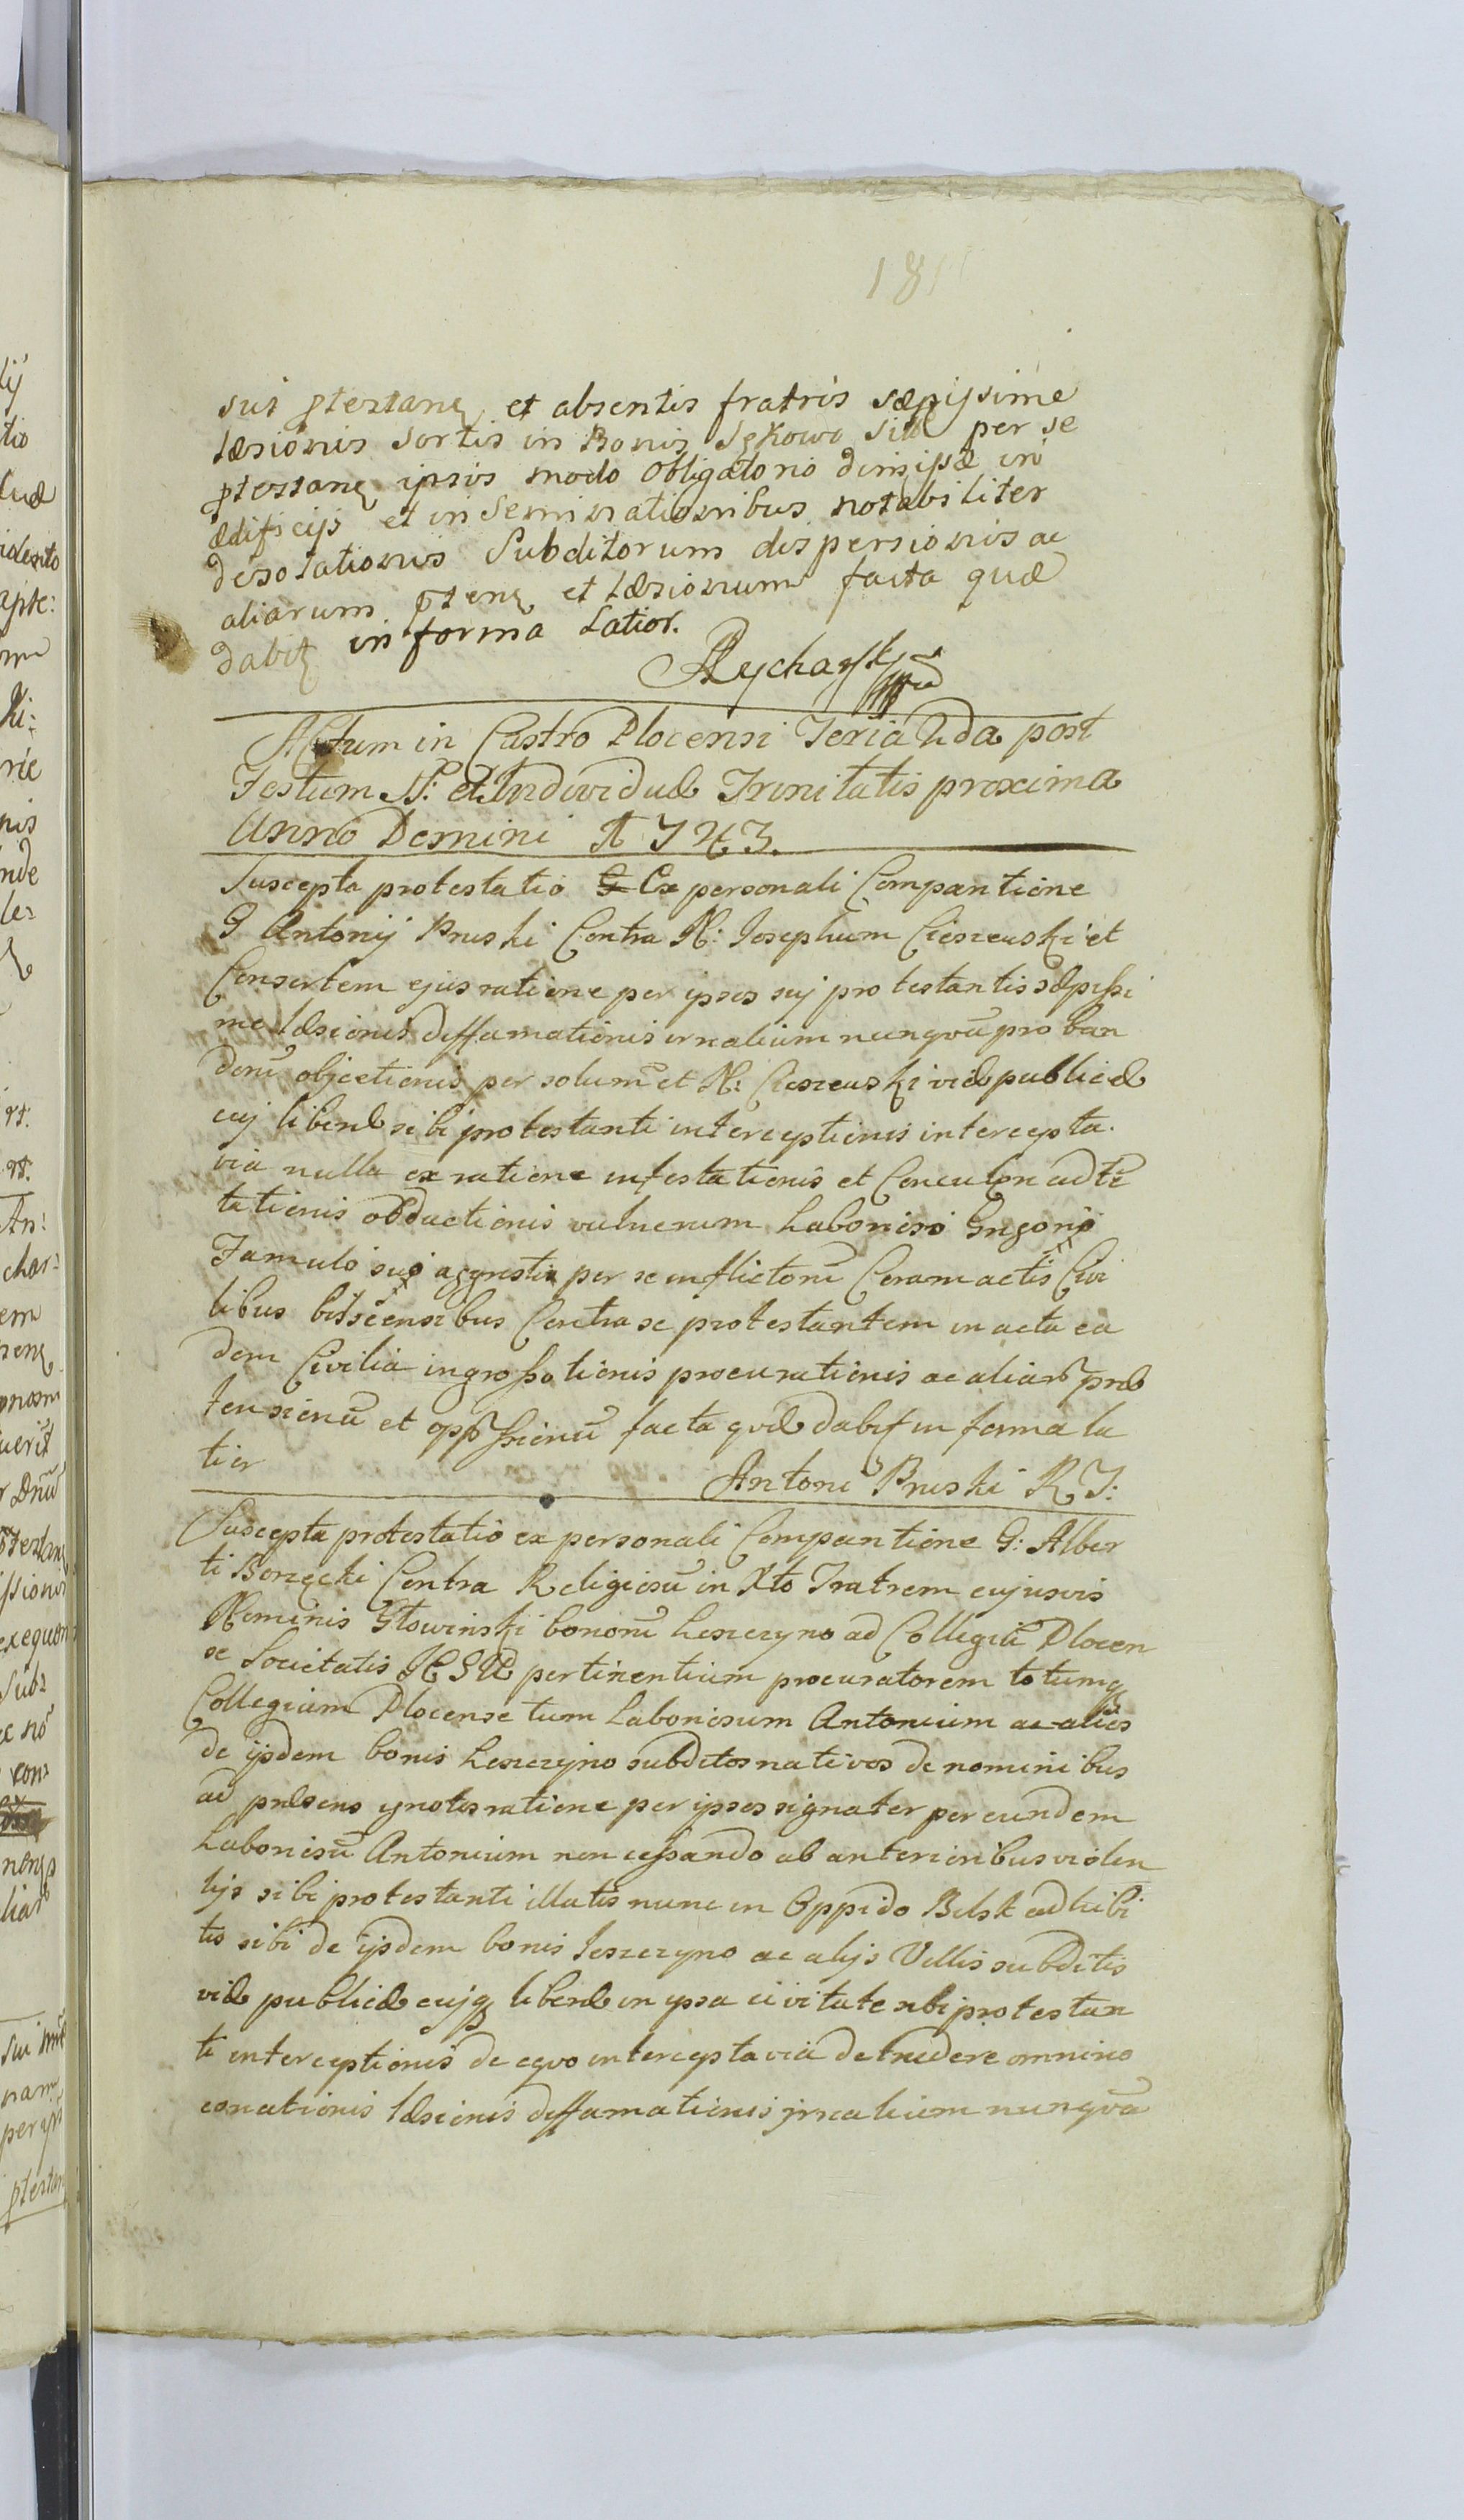 181
sui ptestanẽ et absentis fratris sæpissime
læsionis sortis in Bonis Sękowo sitæ per se
ptestanẽ ipsis modo obligatorio dimissæ in
ædificijs et in Seminationibus notabiliter
desolationis Subditorum dispersionis ac
aliarum ptenẽ et læsionum facta quæ
dabit in forma Latior.
Rycharsky
Actum in Castro Plocensi Feria 2da post
Festum SS: et Individuæ Trinitatis proxima
Anno Domini 1743.
Suscepta protestatio Ex personali Comparitione
G Antonij Pruski Contra N: Josephum Cieszewski et
Consortem ejus ratione per ipsos suj protestantis sæpissi
me læsionis deffamationis irrealium nunqvã proban
dorũ objectionis per solum et N: Cieszewski viæ publicæ
cuj liberæ sibi protestanti interceptionis intercepta
via nulla ex ratione infestationis et Conculon ad te
tationis obductionis vulnerum Laborioso Gregorio
Famulo suo agresti per se inflictorũ Coram actis Civi
libus Contra se protestantem in acta ea
dem Civilia ingrossationis procurationis ac aliarũ præ
tensionũ et oppssionũ facta qvæ dabit in forma la
tior
Antoni Pruski R J:
Suscepta protestatio ex personali Comparitione G: Alber
ti Borzęcki Contra Religiosũ in Xto Fratrem cujusvis
Nominis Głowinski bonorũ Leszczyno ad Collegiũ Plocen
se Societatis JESU pertinentium procuratorem totumq
Collegium Plocense tum Laboriosum Antonium ac alios
de ijsdem bonis Leszczyno subditos nativos de nominibus
ad præsens ignotos ratione per ipsos signater per eundem
Laboriosũ Antonium non cessando ab anterioribus violen
tijs sibi protestanti illatis nunc in Oppido Bilsk adhibi
tis sibi de ijsdem bonis Leszczyno ac alijs Villis subditis
viæ publicæ cujq liberæ in ipsa civitate sibi protestan
ti interceptionis de eqvo intercepta via detrudere omnino
conationis læsionis deffamationis irrealium nunqvã